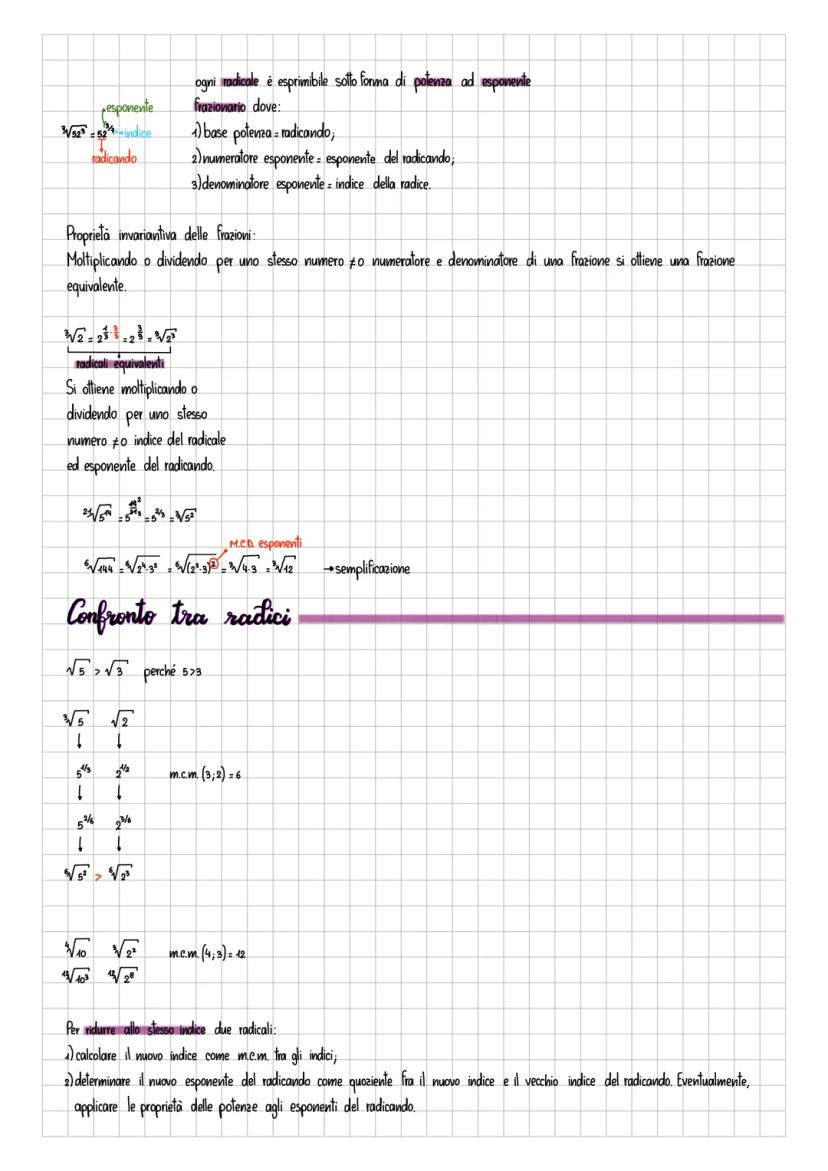 ogni radicale è esprimibile sotto forma di potenza ad esponente
frazionario dove:
esponente
∛52³ = 52^3/4 → indice
radicando
1) base potenza = radicando;
2) numeratore esponente = esponente del radicando;
3) denominatore esponente = indice della radice.
Proprietà invariantiva delle frazioni:
Moltiplicando o dividendo per uno stesso numero ≠0 numeratore e denominatore di una frazione si ottiene una frazione
equivalente.
∛2 = 2^(1/3 · 3/3) = 2^(3/9) = ⁹√2³
radicali equivalenti
Si ottiene moltiplicando o
dividendo per uno stesso
numero ≠0 indice del radicale
ed esponente del radicando.
²¹√5¹⁴ = 5^(14²/21³) = 5^2/3 = ∛5²
M.C.D. esponenti
⁶√144 = ⁶√2⁴·3² = ⁶√(2²·3)² = ∛4·3 = ∛12 → semplificazione
Confronto tra radici
√5 > √3 perché 5>3
∛5 √2
↓ ↓
5^1/3 2^1/2 m.c.m. (3;2) = 6
↓ ↓
5^2/6 2^3/6
↓ ↓
⁶√5² > ⁶√2³
⁴√10 ∛2² m.c.m. (4;3) = 12
¹²√10³ ¹²√2⁸
Per ridurre allo stesso indice due radicali:
1) calcolare il nuovo indice come m.c.m. tra gli indici;
2) determinare il nuovo esponente del radicando come quoziente fra il nuovo indice e il vecchio indice del radicando. Eventualmente,
applicare le proprietà delle potenze agli esponenti del radicando.